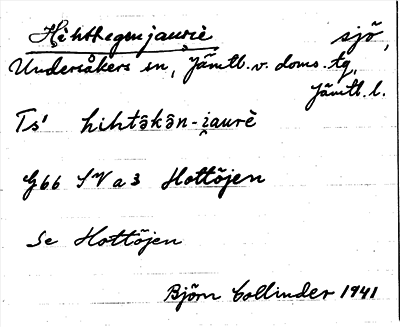 Hihttegenjaurie sjö,
Undersåkers sn, Jämtl. v. doms. tg,
Jämtl. l.
Ts' hihtə̂kə̂n-i̯aurē
G66 SV a 3 Hottöjen
Se Hottöjen
Björn Collinder 1941